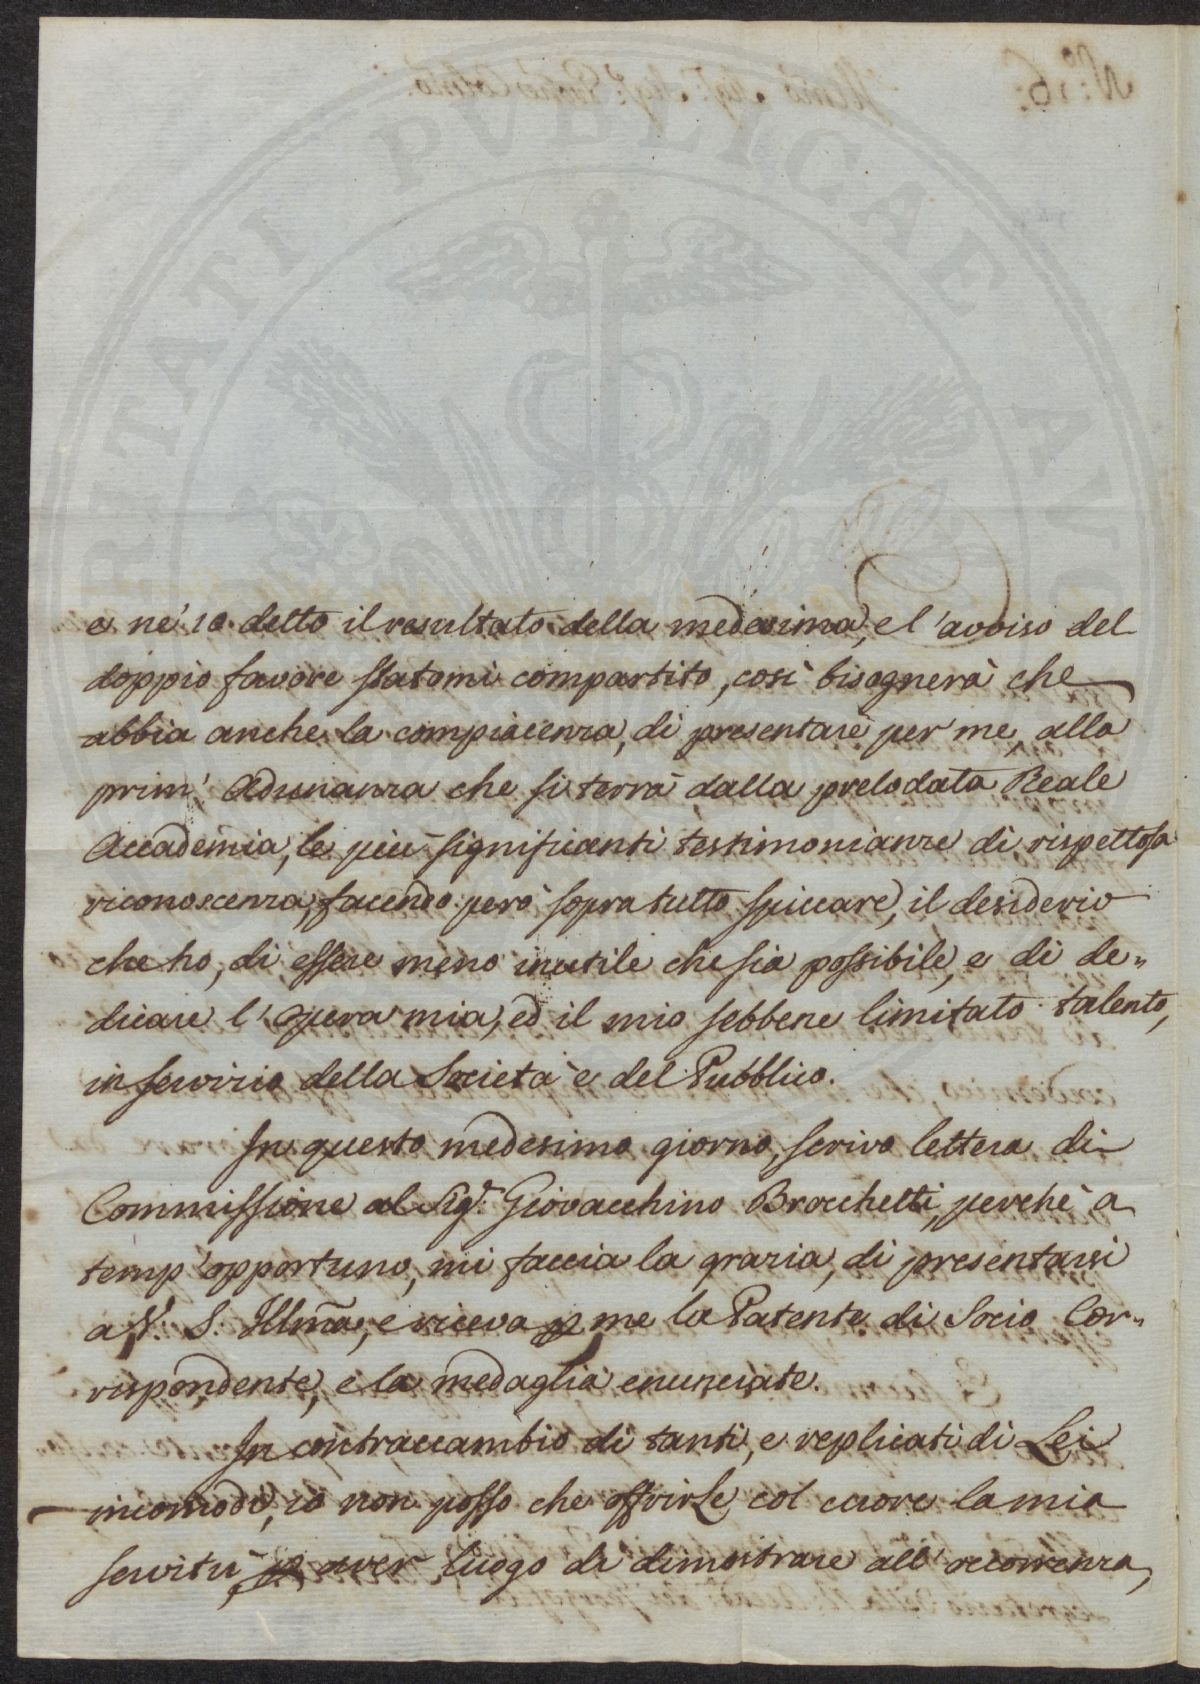 PROSPERITATI PUBLICAE AUGENDAE
e ne' 10. detto il resultato della medesima, e l'avviso del
doppio favore statomi compartito, così bisognerà che
abbia anche la compiacenza, di presentare per me, alla
prim' Adunanza che si terrà dalla prelodata Reale
Accademia, le più significanti testimonianze di rispettosa
riconoscenza, facendo però sopra tutto spiccare, il desiderio
che ho, di essere meno inutile che sia possibile, e di de„
dicare l'opera mia, ed il mio sebbene limitato talento,
in servizio della Società e del Pubblico.
In questo medesimo giorno, scrivo lettera di
Commissione al Sig.r Giovacchino Brocchetti, perchè a
temp' opportuno, mi faccia la grazia, di presentarsi
a V. S. Illma, e riceva p me la Patente di Socio Cor„
rispondente, e la medaglia enunciate.
In contraccambio di tanti, e replicati di Lei
incomodi, io non posso che offrirLe col cuore la mia
servitù, p aver luogo di dimostrare all' occorrenza,